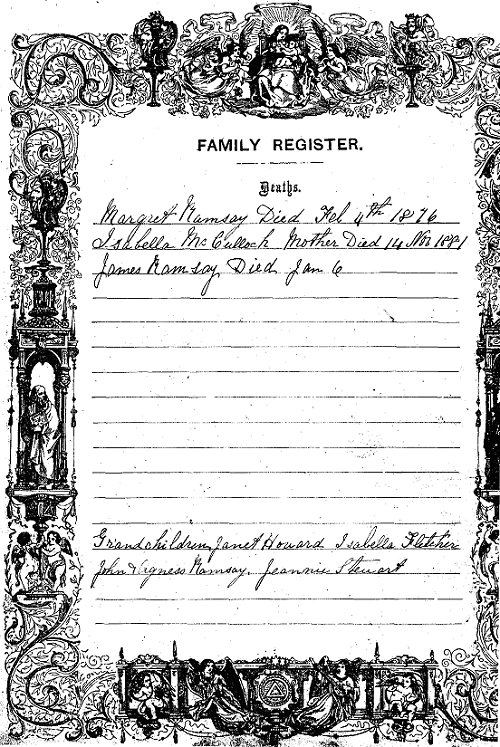 FAMILY REGISTER.
Deaths.
Margret Ramsay Died Feb 4th 1876
Isabella McCulloch Mother Died 14 Nov 1881
James Ramsay Died Jan 6
Grandchildren, Janet Howard Isabella Fletcher
John & Agness Ramsay. Jeannie Stewart